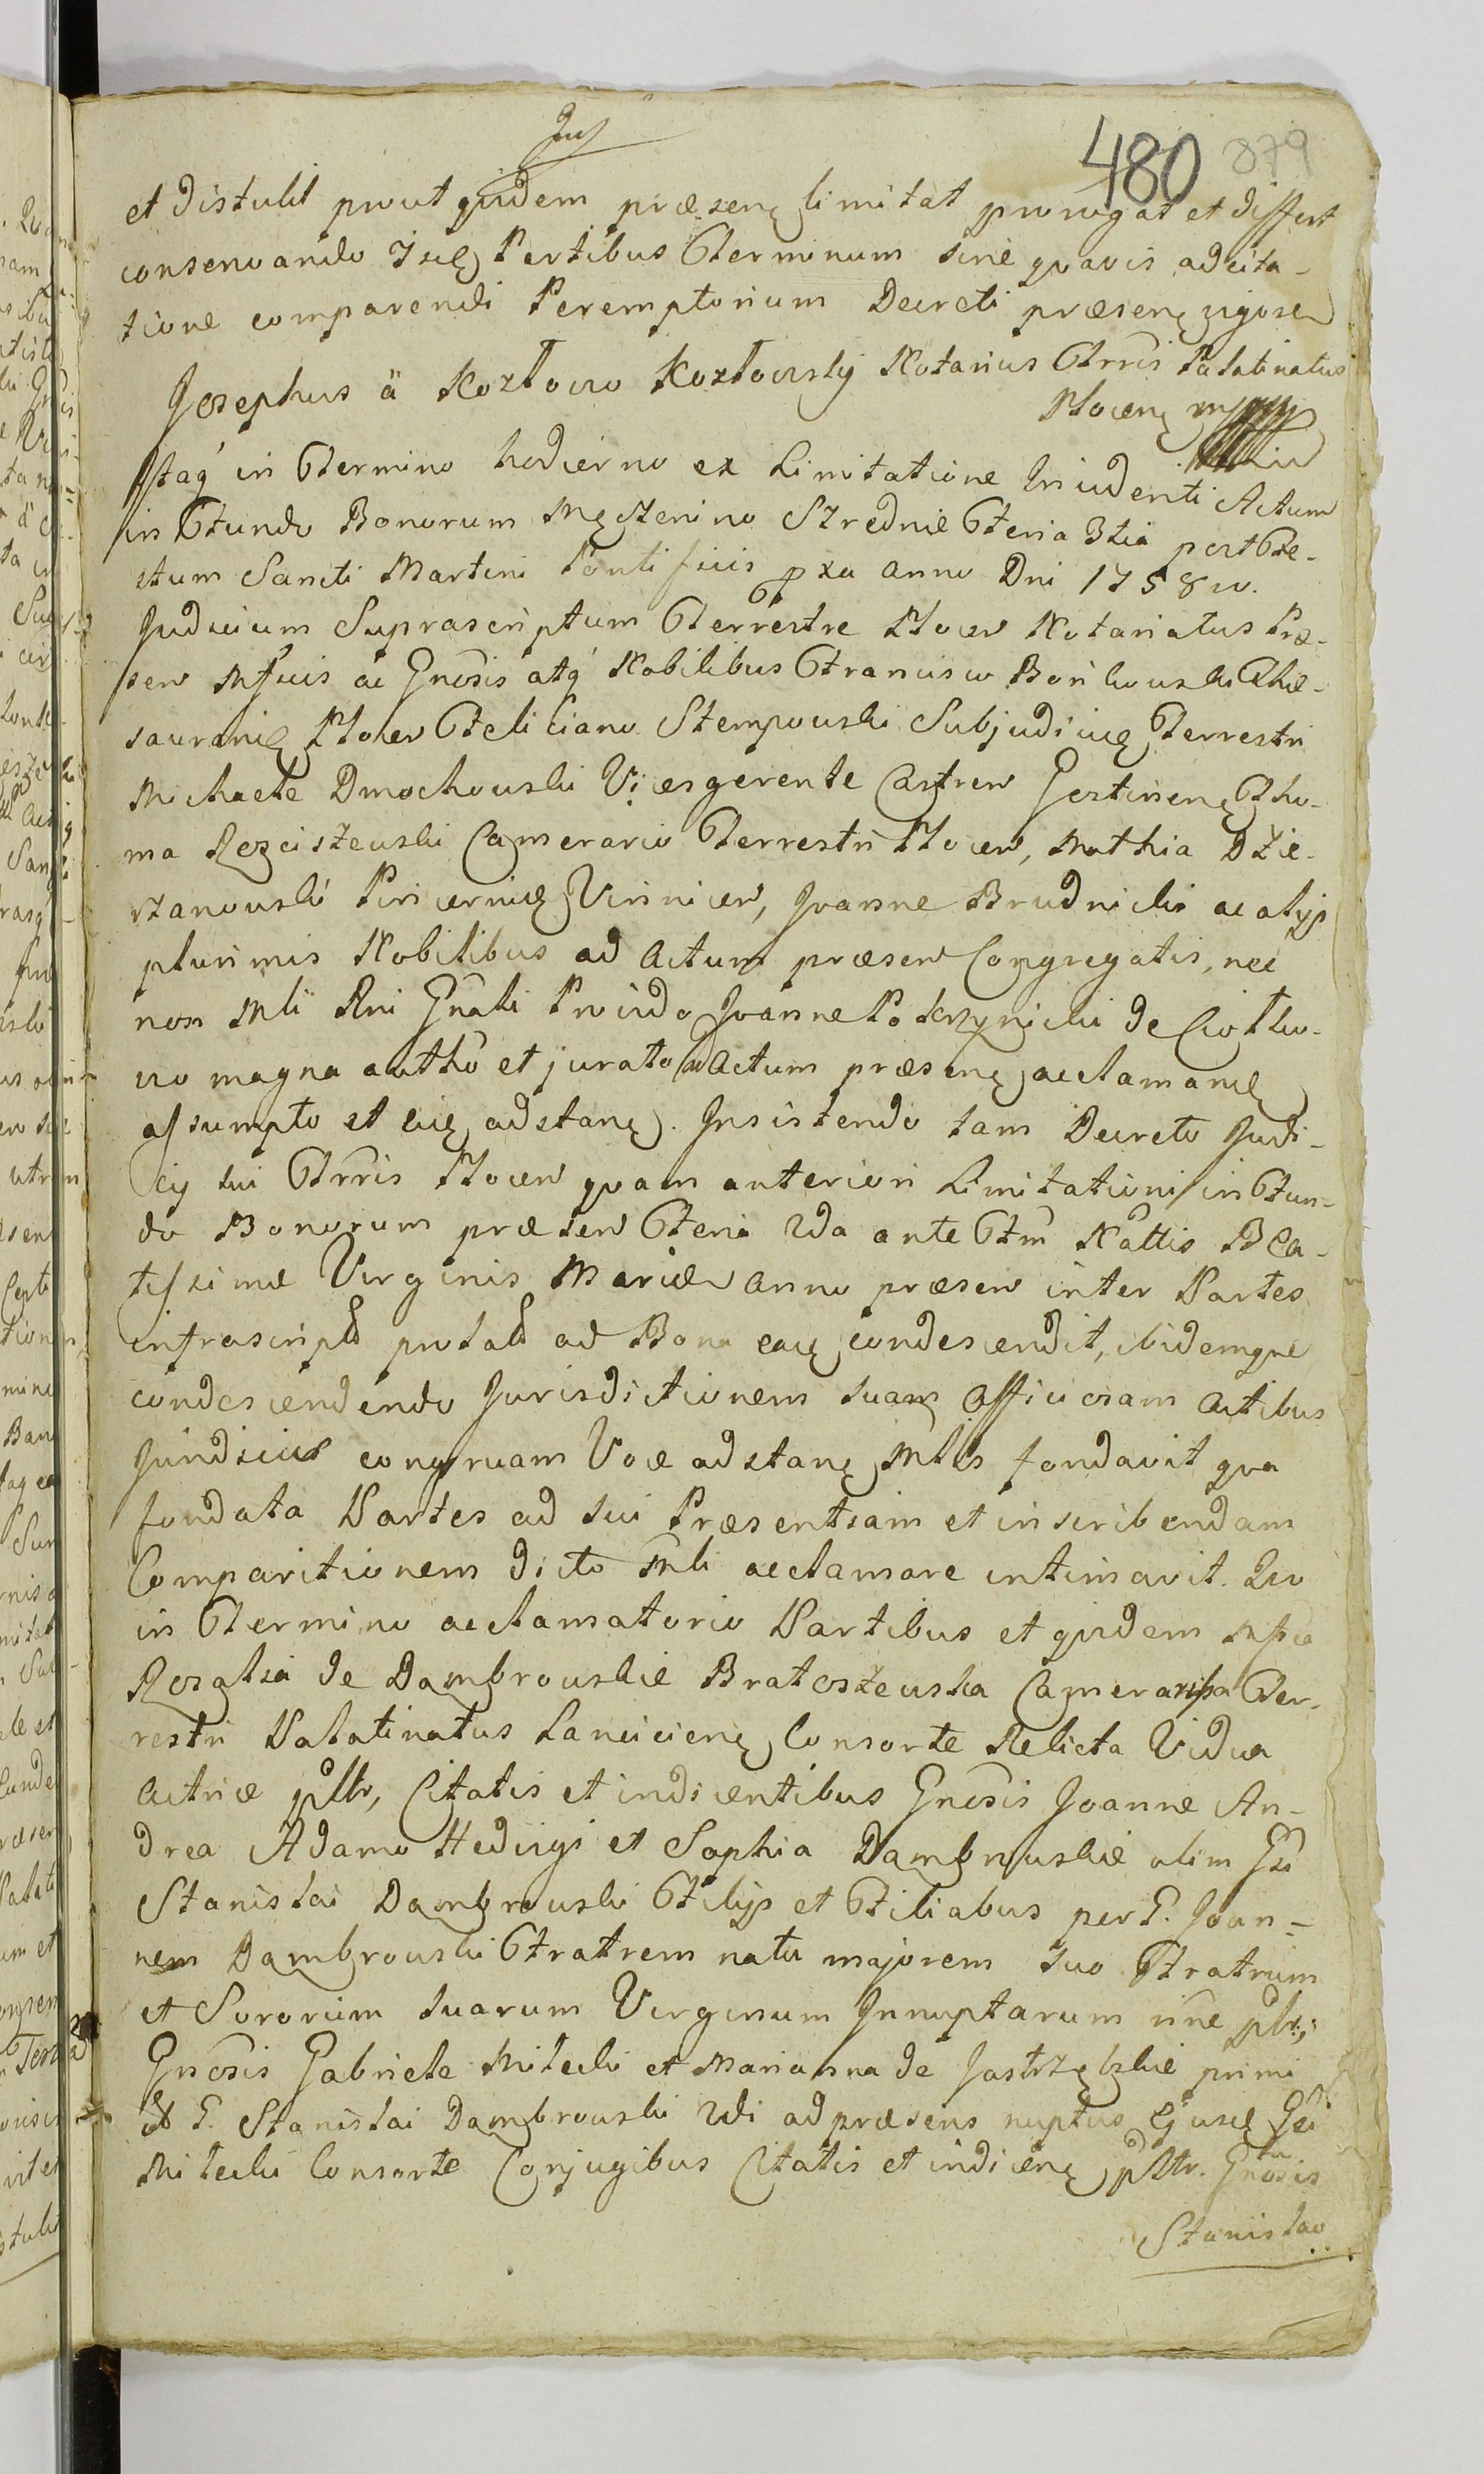 480 879
et distulit prout quidem præsenę limitat prorogat et differt
conservando Iisdę Partibus Terminum sine quavis adcita-
tione comparendi Peremptorium Decreti præsenę vigore
Josephus ä Kozłowo Kozłowsky Notarius Trris Palatinatus
Plocenę mpp
Itaq́ in Termino hodierno ex Limitatione Inciden­ti Actum
in Fundo Bonorum Męczenino Szrednie Feria 3tia post Fe-
stum Sancti Martini Pontificis pxa Anno Dni 1758vo.
Judicium Suprascriptum Terrestre Plocen Notariatus Præ-
sen Mfcis ac Gnosis atq́ Nobilibus Francisco Bońkowski The-
saurarię Plocen Feliciano Stempowski Subjudicę Terrestri
Michaele Dmochowski Vicesgerente Castren Gostinenę Tho-
ma Rosciszewski Camerario Terrestri Plocen, Mathia Dzie-
rzanowski Pincernię Vinnicen, Joanne Brudnicki ac alijs
plurimis Nobilibus ad Actum præsen Congregatis, nec
non Mli Rni Gnali Provido Joanne Pokrzynicki de Ciołko-
wo magna autho et jurato ad Actum præsenę acclamandę
assumpto et eię adstanę. Insistendo tam Decreto Judi-
cij sui Trris Plocen quam anteriori Limitationi in Fun-
do Bonorum præsen Feria 2da ante Ftm Nattis Bea-
tissimæ Virginis Mariæ Anno præsen inter Partes
infrascript prolat ad Bona eadę condescendit, ibidemque
condescendendo Jurisdictionem suam Officiosam Actibus
Jundiciis congruam Voce adstanę Mlis fundavit qua
fundata Partes ad sui Præsentiam et inscribendam
Comparitionem dicto Mli acclamare intimavit. Quo
in Termino acclamatorio Partibus et quidem Mfca
Rosalia de Dambrowskie Bratoszewska Camerarissa Ter-
restri Palatinatus Lancicienę Consorte Relicta Vidua
Actrice pltr, Citatis et indicentibus Gnosis Joanne An-
drea Adamo Hedvigi et Sophia Dambrowskie olim Gsi
Stanislai Dambrowski Filijs et Filiabus per G. Joan-
nem Dambrowski Fratrem natu majorem suo Fratrum
et Sororum suarum Virginum Innuptarum nne pltr,
Gnosis Gabriele Milecki et Marianna de Jastrzębskie primi
G. Stanislai Dambrowski 2di ad præsens nuptus Ejusdę Gsi
Milecki Consorte Conjugibus Citatis et indicenę pltr. Gnosis
Stanislao